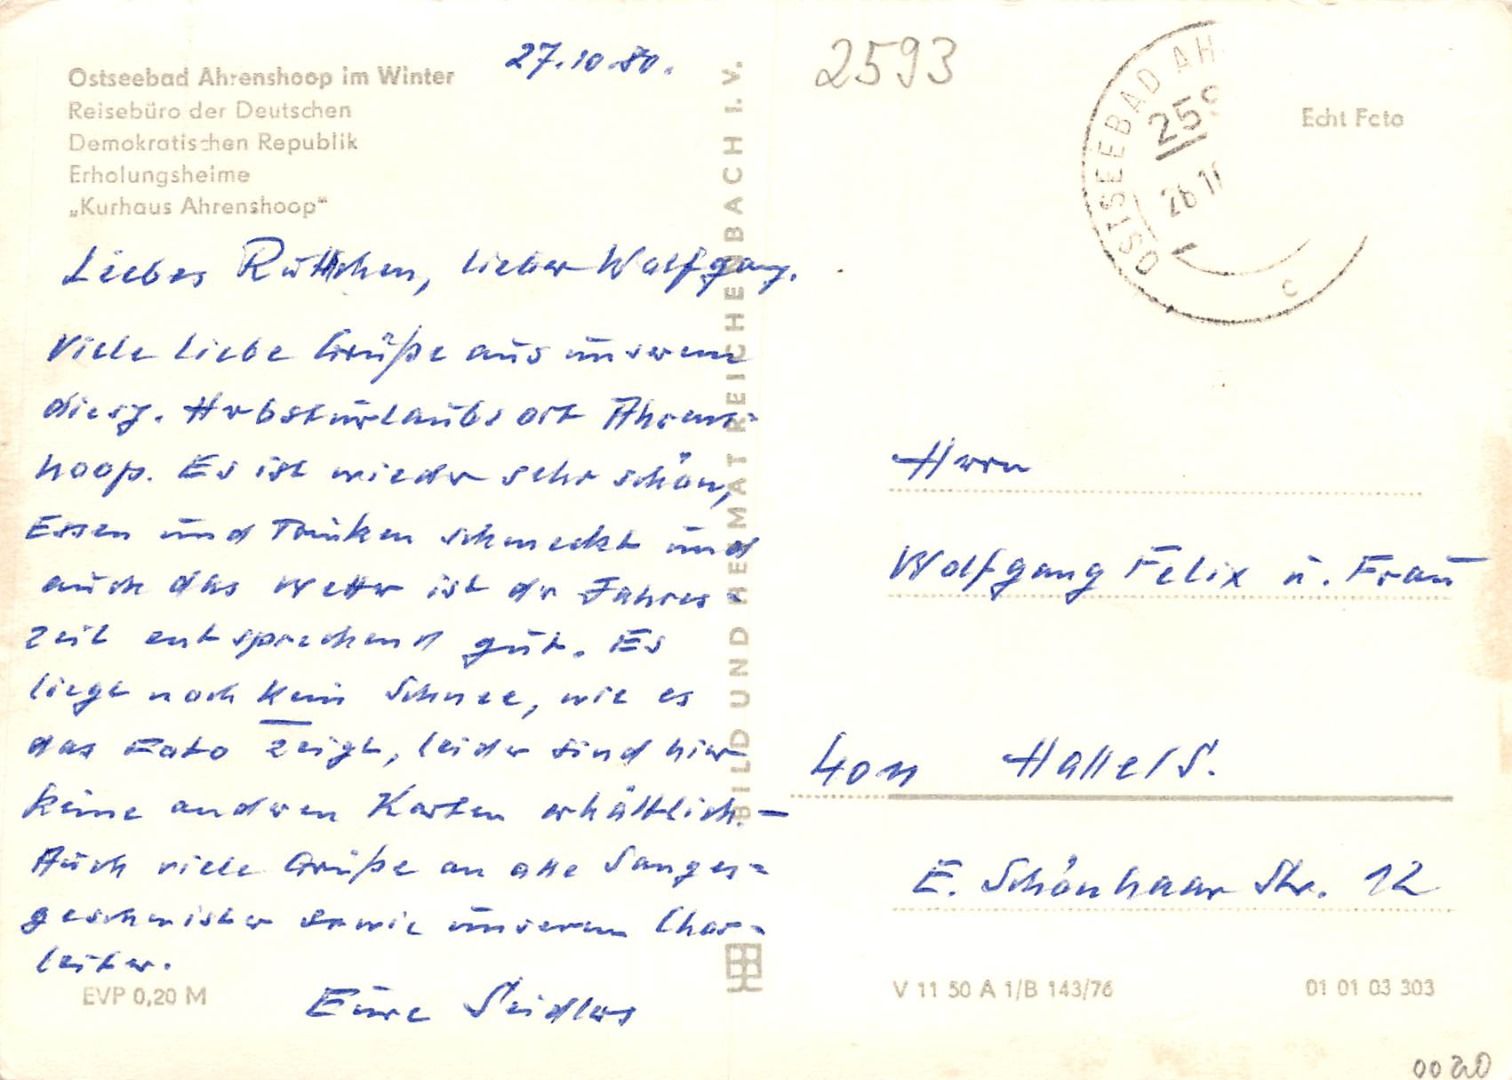 27.10.80.
Ostseebad Ahrenshoop im Winter
Reisebüro der Deutschen
Demokratischen Republik
Erholungsheime
„Kurhaus Ahrenshoop“
Liebes Ruthchen, lieber Wolfgang.
Viele liebe Grüße aus unserem
diesj. Herbsturlaubsort Ahrens-
hoop. Es ist wieder sehr schön,
Essen und Trinken schmeckt und
auch das Wetter ist der Jahres-
zeit entsprechend gut. Es
liegt noch kein Schnee, wie es
das Foto zeigt, leider sind hier
keine anderen Karten erhältlich. –
Auch viele Grüße an alle Sanges=
geschwister sowie unserem Chor-
leiter.
Eure Seidlers
EVP 0,20 M
BILD UND HEIMAT REICHENBACH I. V.
2593
OSTSEEBAD AH
259
28.1
c
Echt Foto
Herrn
Wolfgang Felix u. Frau
4011 Halle/S.
E. Schönhaar Str. 12
V 11 50 A 1/B 143/76
01 01 03 303
0020